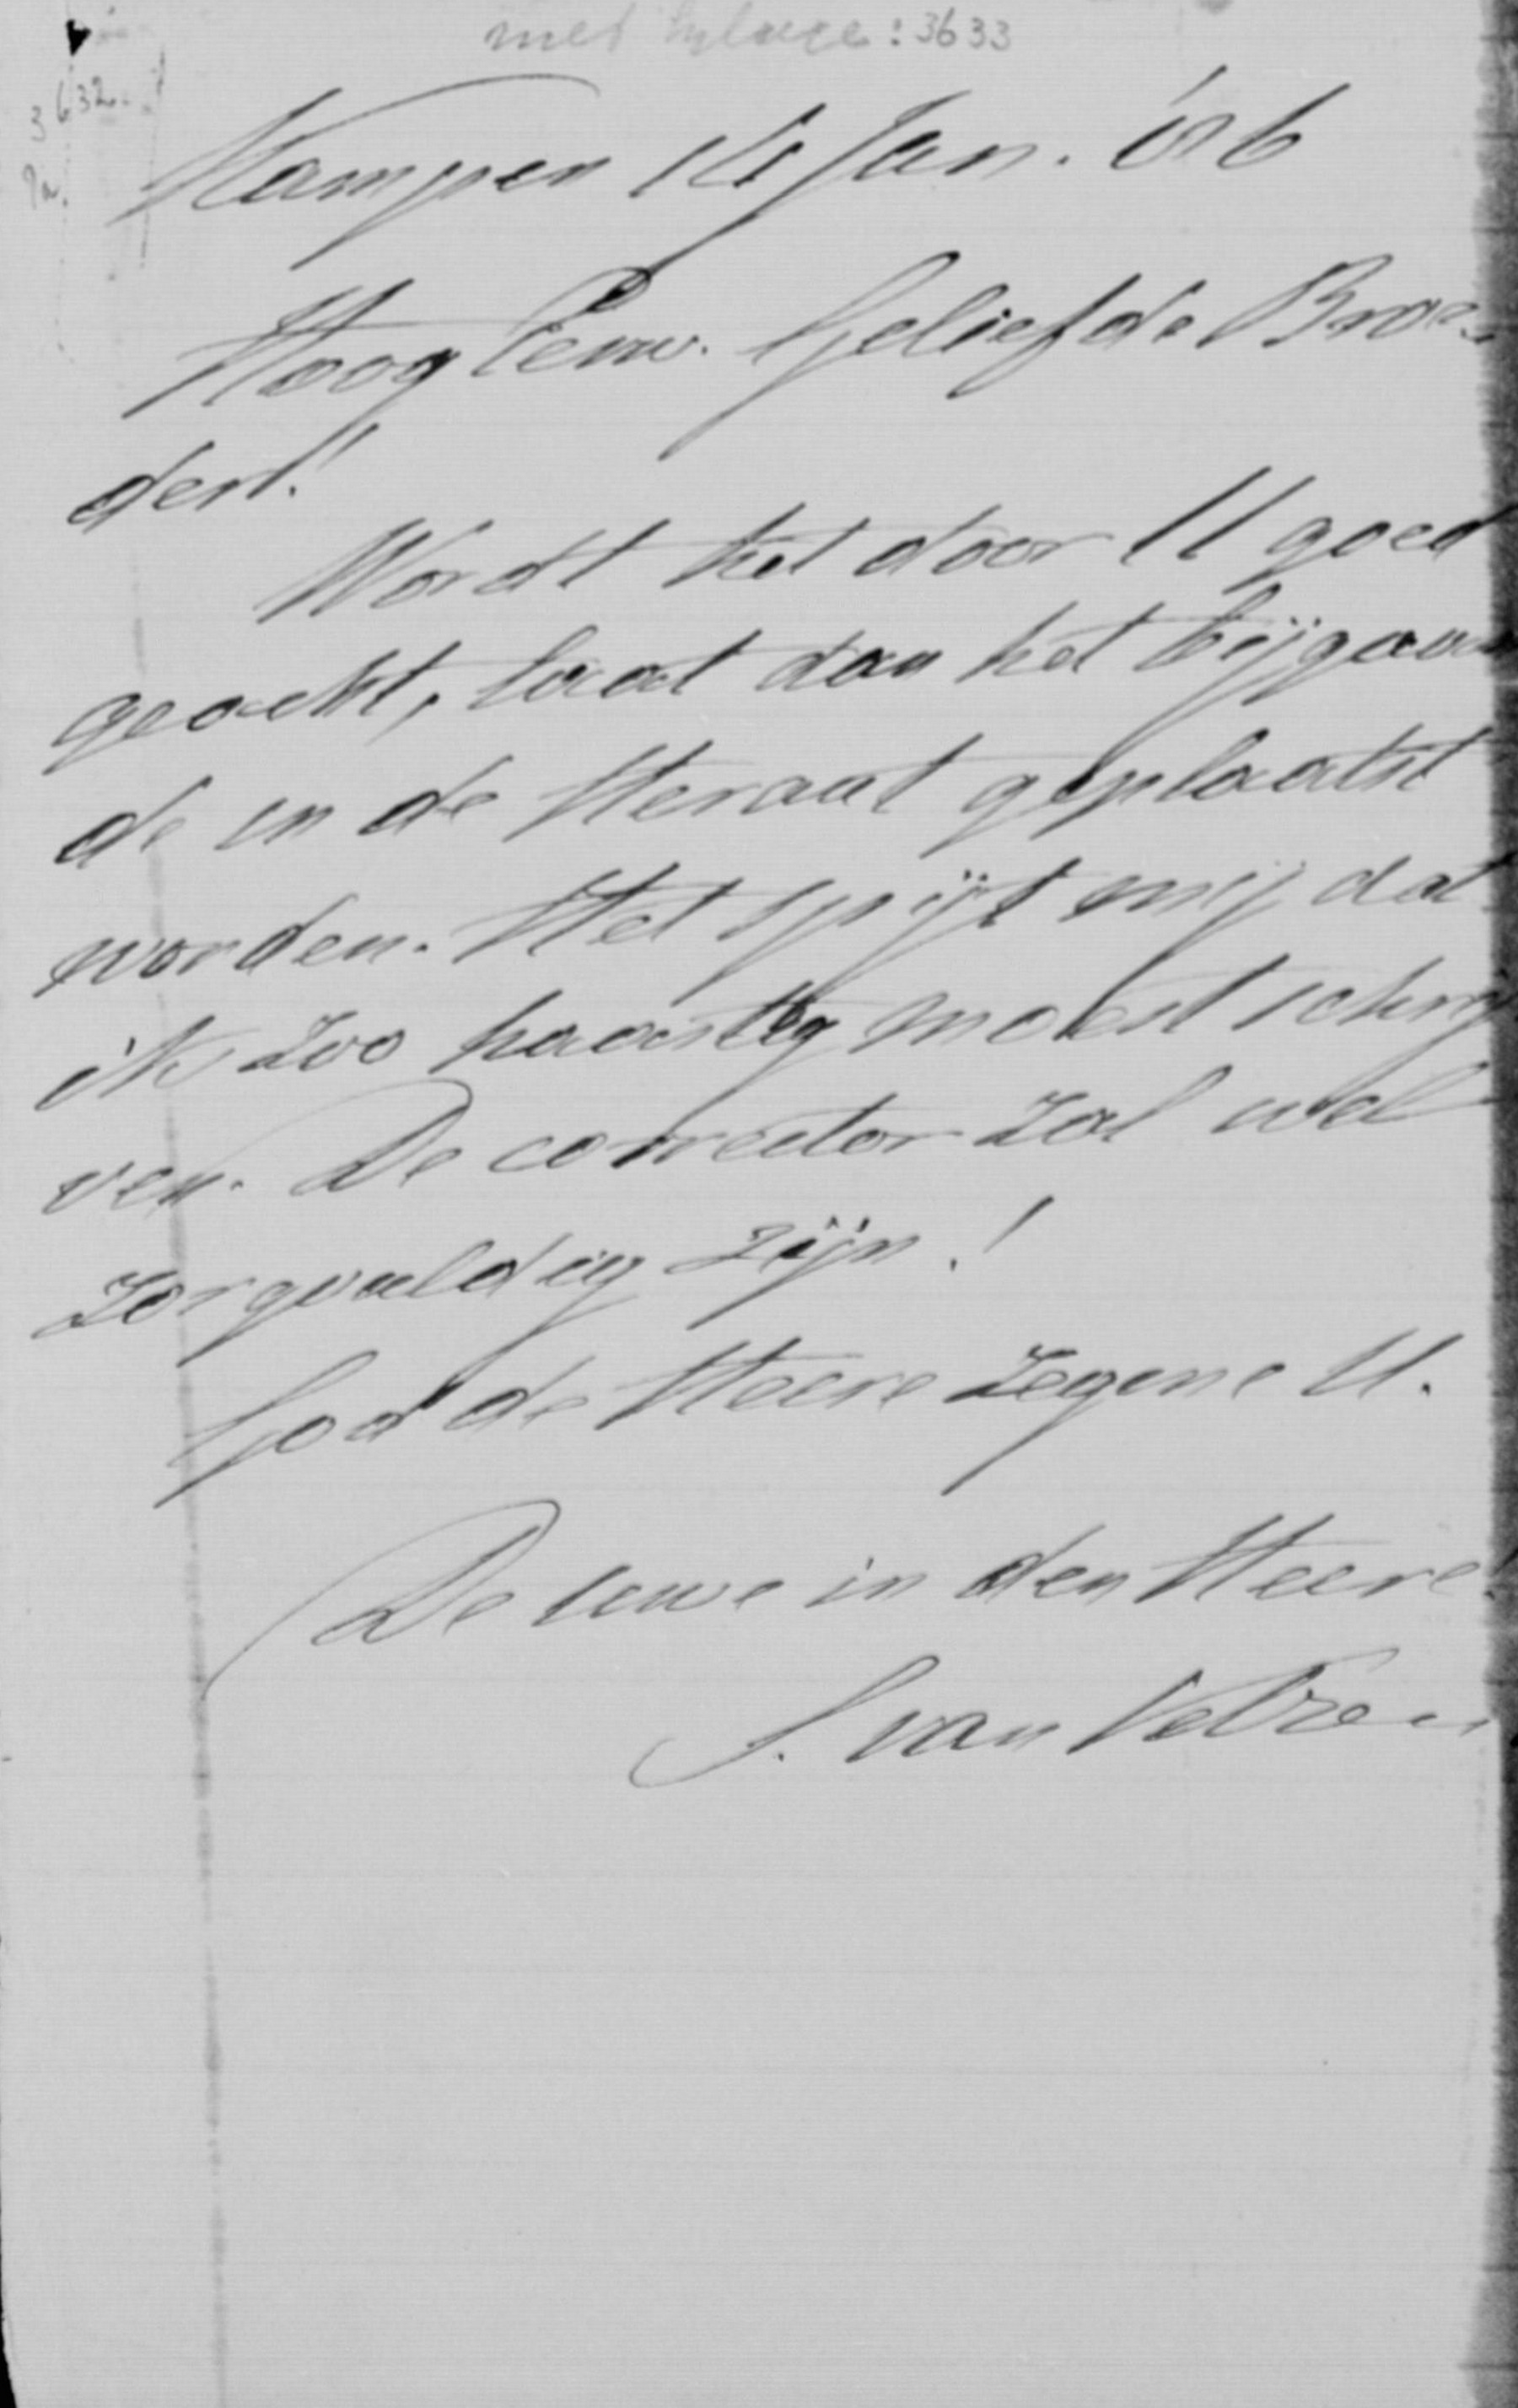 met bylage: 3633
3632.
Kampen 14 Jan. 86
Hoog Eerw. Geliefde Broe-
der!
Wordt het door U goed
geacht, laat dan het bijgaan
de in de Heraut geplaatst
worden. Het spijt mij dat
ik zoo haastig moest schrij
ven. De corrector zal wel
zorgvuldig zijn!
God de Heere zegene U.
De uwe in den Heere!
S. van Velzen